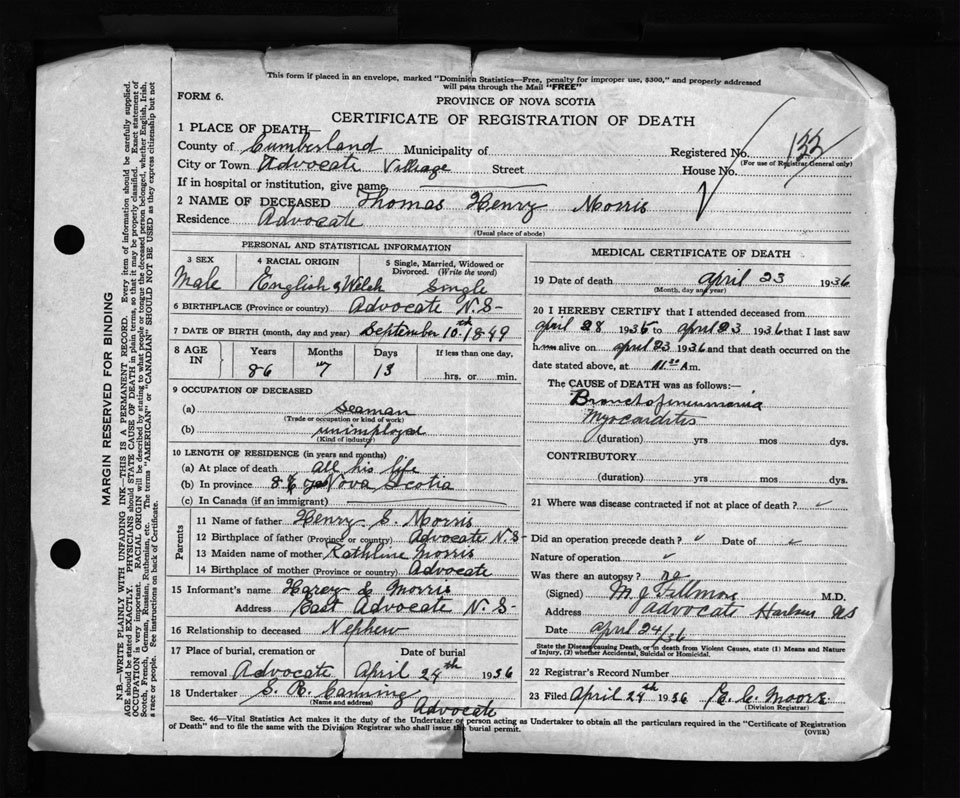 This form if placed in an envelope, marked "Dominion Statistics—Free, penalty for improper use, $300," and properly addressed
will pass through the Mail "FREE"
FORM 6.
PROVINCE OF NOVA SCOTIA
CERTIFICATE OF REGISTRATION OF DEATH
1 PLACE OF DEATH—
County of Cumberland Municipality of
Registered No. 133
(For use of Registrar General only)
City or Town Advocate Village Street House No.
If in hospital or institution, give name
2 NAME OF DECEASED Thomas Henry Morris
Residence Advocate
(Usual place of abode)
PERSONAL AND STATISTICAL INFORMATION
3 SEX 4 RACIAL ORIGIN 5 Single, Married, Widowed or
Divorced. (Write the word)
Male English & Welsh Single
6 BIRTHPLACE (Province or country) Advocate N.S-
7 DATE OF BIRTH (month, day and year) September 10th 1849
8 AGE IN Years Months Days If less than one day,
86 7 13 hrs. or min.
9 OCCUPATION OF DECEASED
(a) Seaman
(Trade or occupation or kind of work)
(b) unimployed
(Kind of industry)
10 LENGTH OF RESIDENCE (in years and months)
(a) At place of death all his life
(b) In province 86 Nova Scotia
(c) In Canada (if an immigrant)
Parents
11 Name of father Henry E. Morris
12 Birthplace of father (Province or country) Advocate N.S-
13 Maiden name of mother Kathline Morris
14 Birthplace of mother (Province or country) Advocate
15 Informant's name Harey E Morris
Address East Advocate N.S-
16 Relationship to deceased Nephew
17 Place of burial, cremation or Date of burial
removal Advocate April 24th 1936
18 Undertaker S. R. Canning
(Name and address) Advocate
MEDICAL CERTIFICATE OF DEATH
19 Date of death April 23 1936
(Month, day and year)
20 I HEREBY CERTIFY that I attended deceased from
april 28 1935 to april 23 1936 that I last saw
him alive on april 23 1936 and that death occurred on the
date stated above, at 11.20 A m.
The CAUSE of DEATH was as follows:—
Bronchopneumonia
Myocarditis
(duration) yrs mos dys.
CONTRIBUTORY
(duration) yrs mos dys.
21 Where was disease contracted if not at place of death?
Did an operation precede death? Date of
Nature of operation
Was there an autopsy? no
(Signed) M. J. Fillmore M.D.
Address Advocate Harbour NS
Date april 24/36
State the Disease causing Death, or in death from Violent Causes, state (1) Means and Nature
of Injury, (2) whether Accidental, Suicidal or Homicidal.
22 Registrar's Record Number
23 Filed April 24th 1936 E. C. Moore
(Division Registrar)
Sec. 46—Vital Statistics Act makes it the duty of the Undertaker or person acting as Undertaker to obtain all the particulars required in the "Certificate of Registration
of Death" and to file the same with the Division Registrar who shall issue the burial permit.
(OVER)
MARGIN RESERVED FOR BINDING
N.B.—WRITE PLAINLY WITH UNFADING INK—THIS IS A PERMANENT RECORD. Every item of information should be carefully supplied.
AGE should be stated EXACTLY. PHYSICIANS should STATE CAUSE OF DEATH in plain terms, so that it may be properly classified. Exact statement of
OCCUPATION is very important. RACIAL ORIGIN will be described by stating to what people or tongue the deceased person belonged, whether English, Irish,
Scotch, French, German, Russian, Ruthenian, etc. The terms "AMERICAN" or "CANADIAN" SHOULD NOT BE USED as they express citizenship but not
a race or people. See instructions on back of Certificate.